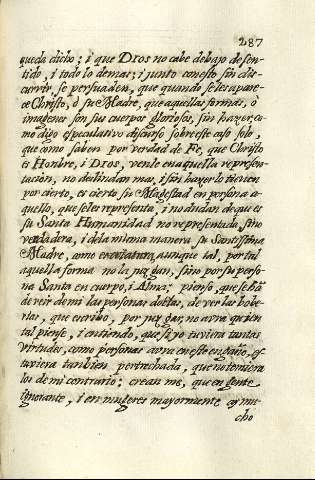 287
queda dicho; i que Dios no cabe debajo de sen-
tido, i todo lo demas; i junto con esto sin dis-
currir, se persuaden, que quando se les apare-
ce Christo, ò su Madre, que aquellas formas, ò
imagenes son sus cuerpos gloriosos, sin hazer, co-
mo digo especulativo discurso sobre este caso solo,
que como saben por verdad de Fe, que Christo
es Hombre, i Dios, venle en aquella represen-
tacion, no deslindan mas, i sin hazerlo tienen
por cierto, es cierto su Magestad en persona a-
quello, que se les representa, i no dudan de que es
su Santa Humanidad no representada, sino
verdadera, i de la misma manera su Santissima
Madre, como es criatura, aunque tal, por tal
aquella forma no la juzgan, sino por su perso-
na Santa en cuerpo, i Alma; pienso, que se hã
de reir de mi las personas doctas, de ver las bobe-
rias, que escribo, por juzgar, no avra quien
tal piense, i entiendo, que si yo tuviera tantas
virtudes, como personas ai en este engaño, es-
tuviera tambien pertrechada, que no temiera
los de mi contrario; crean me, que en gente
ignorante, i en mugeres mayormente ay mu-
cho